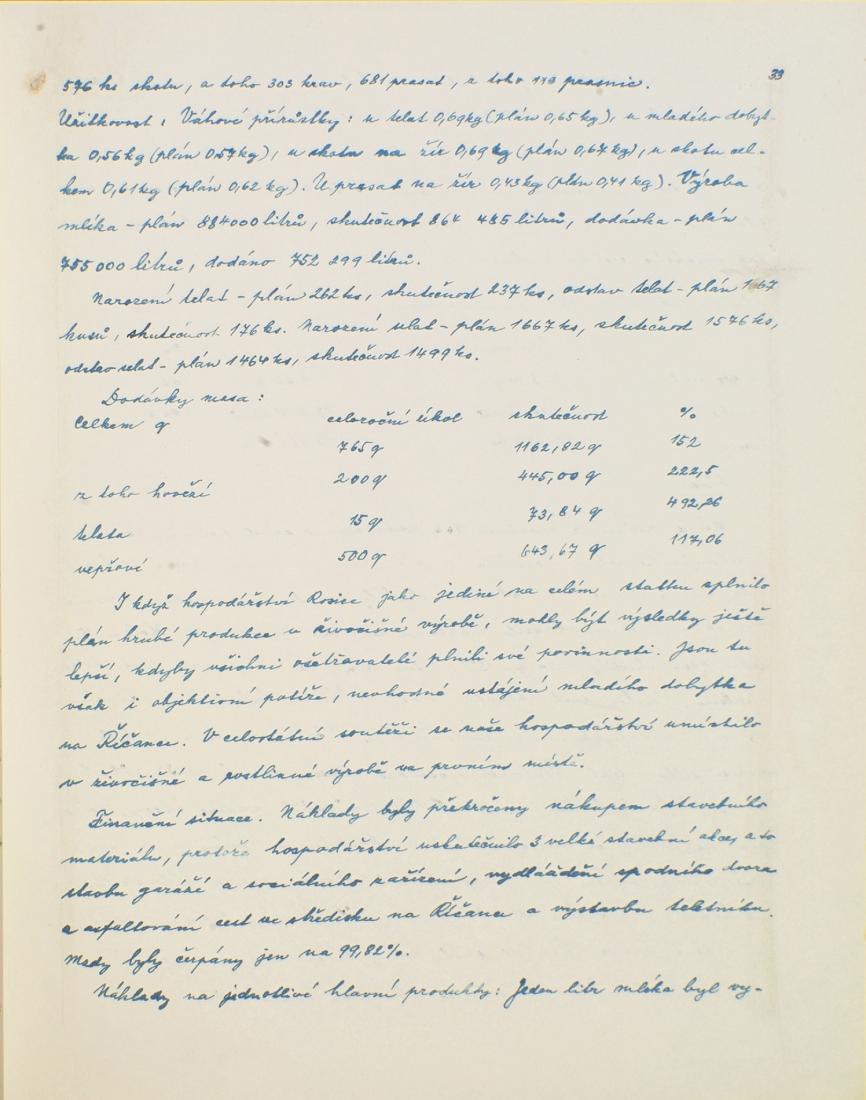 33
576 ks skotu, z toho 303 krav, 681 prasat, z toho 119 prasnic.
Užitkovost: Váhové přírůstky: u telat 0,69 kg (plán 0,65 kg), u mladého dobyt-
ka 0,56 kg (plán 0,57 kg), u skotu na žír 0,69 kg (plán 0,67 kg), u skotu cel-
kem 0,61 kg (plán 0,62 kg). U prasat na žír 0,43 kg (plán 0,41 kg). Výroba
mléka - plán 884000 litrů, skutečnost 864 485 litrů, dodávka - plán
755 000 litrů, dodáno 752 299 litrů.
Narození telat - plán 262 ks, skutečnost 237 ks, odstav telat - plán 167
kusů, skutečnost 176 ks. Narození selat - plán 1667 ks, skutečnost 1576 ks,
odstav selat - plán 1464 ks, skutečnost 1499 ks.
Dodávky masa:
Celkem q celoroční úkol skutečnost %
765 q 1162,82 q 152
z toho hovězí 200 q 445,00 q 222,5
telata 15 q 73,84 q 492,26
vepřové 500 q 643,67 q 117,06
I když hospodářství Rosice jako jediné na celém statku splnilo
plán hrubé produkce v živočišné výrobě, mohly být výsledky ještě
lepší, kdyby všichni ošetřovatelé plnili své povinnosti. Jsou tu
však i objektivní potíže, nevhodné ustájení mladého dobytka
na Říčance. V celostátní soutěži se naše hospodářství umístilo
v živočišné a rostlinné výrobě na prvním místě.
Finanční situace. Náklady byly překročeny nákupem stavebního
materiálu, protože hospodářství uskutečnilo 3 velké stavební akce, a to
stavbu garáží a sociálního zařízení, vydláždění spodního dvora
a asfaltování cest ve středisku na Říčance a výstavbu teletníku.
Mzdy byly čerpány jen na 99,82%.
Náklady na jednotlivé hlavní produkty: Jeden litr mléka byl vy-